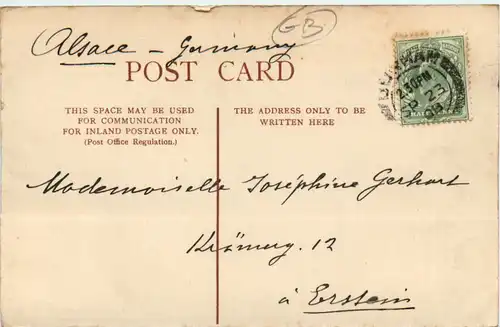 GB
Alsace - Germany
POST CARD
THIS SPACE MAY BE USED
FOR COMMUNICATION
FOR INLAND POSTAGE ONLY.
(Post Office Regulation.)
THE ADDRESS ONLY TO BE
WRITTEN HERE
2.30PM
SP 23
Mademoiselle Joséphine Gerhart
Krämerg. 12
à Erstein